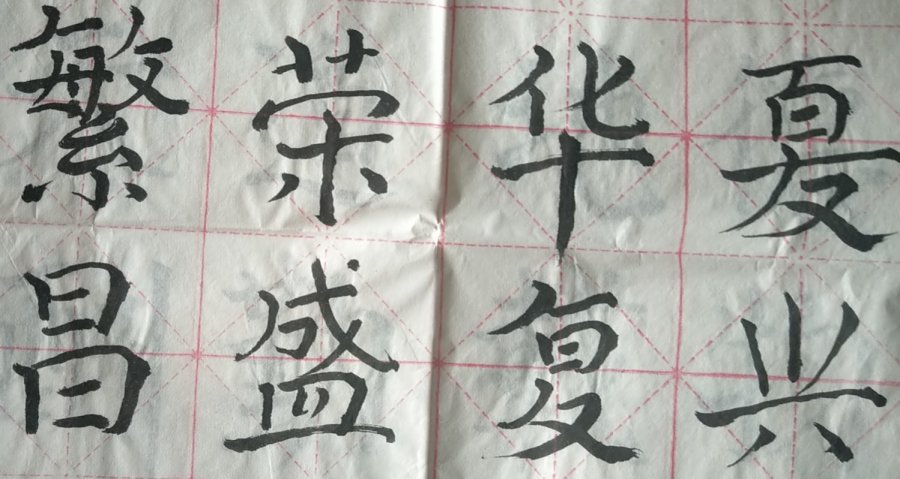 繁荣华夏
昌盛复兴